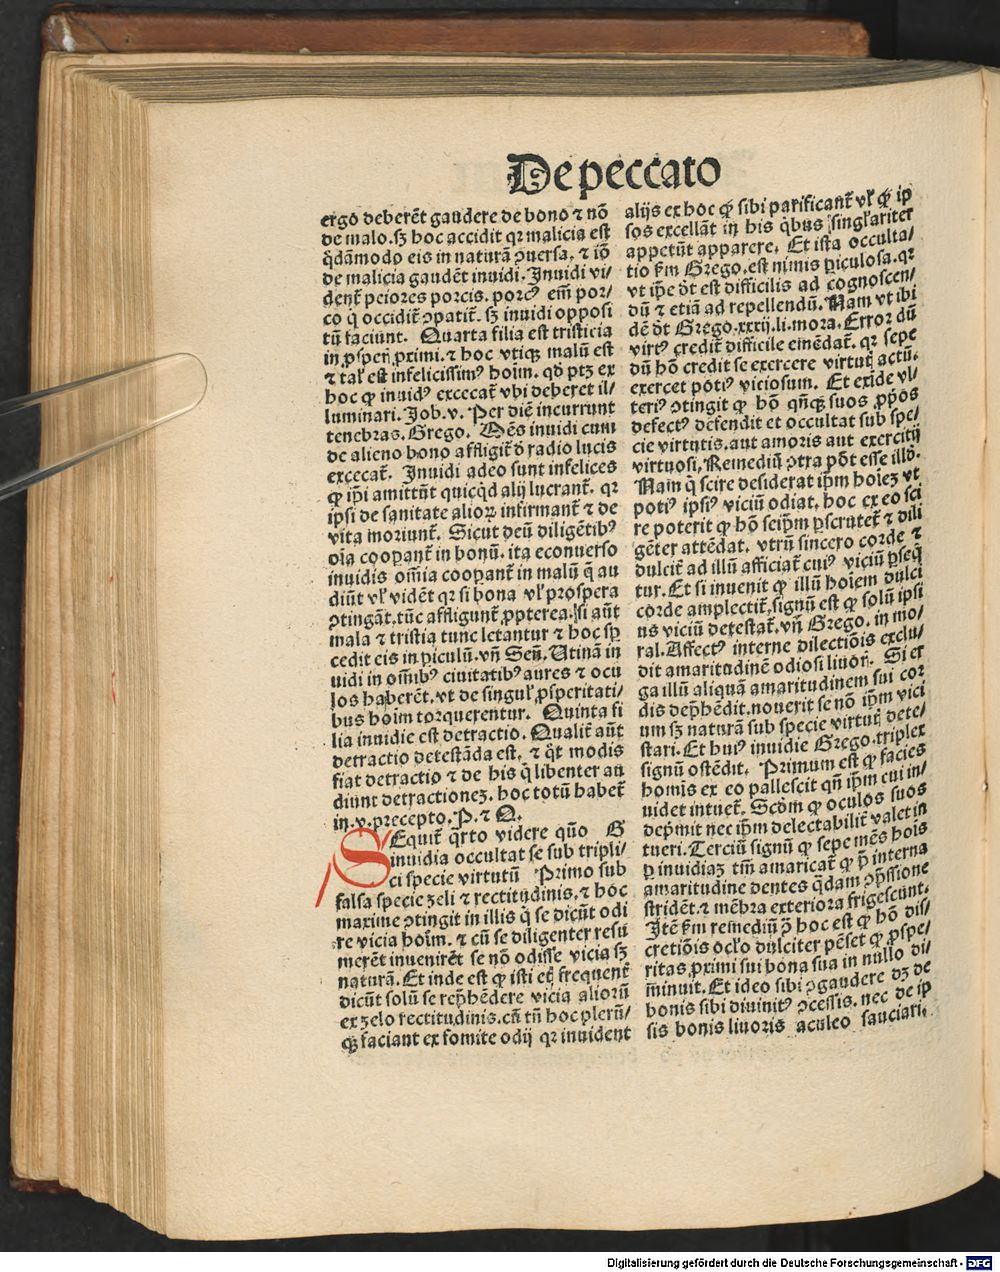 De peccato
ergo deberēt gaudere de bono ⁊ nō
de malo. sꝫ hoc accidit qꝛ malicia est
q̄dāmodo eis in naturā ꝯuersa. ⁊ iō
de malicia gaudēt inuidi. Inuidi vi/
dent̃ peiores porcis. porcꝰ em̄ por/
co q̇ occidit̃ ꝯpatit̃. sꝫ inuidi opposi
tū faciunt. Quarta filia est tristicia
in ꝓsperꝭ ꝓximi. ⁊ hoc vtiqꝫ malū est
⁊ tal̓ est infelicissimꝰ hoīm. qd̓ ptꝫ ex
hoc ꝙ inuidꝰ excecat̃ vbi deberet il/
luminari. Job. v. Per diē incurrunt
tenebras. Grego. Oēs inuidi cum
de alieno bono affligit̃ d̓ radio lucis
excecat̃. Inuidi adeo sunt infelices
ꝙ ip̄i amittūt quicq̇d alij lucrant̃. qꝛ
ipsi de sanitate alioꝝ infirmant̃ ⁊ de
vita moriunt̃. Sicut deū diligētibꝰ
oīa cooꝑant̃ in bonū. ita econuerso
inuidis om̄ia cooꝑant̃ in malū q̄ au
diūt vl̓ vidēt qꝛ si bona vl̓ prospera
ꝯtingāt. tūc affligunt̃ ꝓpterea. si aūt
mala ⁊ tristia tunc letantur ⁊ hoc sꝑ
cedit eis in ꝑiculū. vn̄ Sen̄. Utinā in
uidi in om̄ibꝰ ciuitatibꝰ aures ⁊ ocu
los haberēt. vt de singul̓ ꝓsperitati/
bus hoīm torquerentur. Quinta fi
lia inuidie est detractio. Qualit̃ aūt
detractio detestāda est. ⁊ q̄t modis
fiat detractio ⁊ de his q̇ libenter au
diunt detractioneꝫ. hoc totū habet̃
in. v. precepto. P. ⁊ Q.
SEquit̃ q̄rto videre quō G
inuidia occultat se sub tripli/
ci specie virtutū Primo sub
falsa specie zeli ⁊ rectitudinis. ⁊ hoc
maxime ꝯtingit in illis q̇ se dicūt odi
re vicia hoīm. ⁊ cū se diligenter resu
merēt inuenirēt se nō odisse vicia sꝫ
naturā. Et inde est ꝙ isti etꝭ frequent̃
dicūt solū se rep̄hēdere vicia aliorū
ex zelo rectitudinis. cū tn̄ hoc plerū/
qꝫ faciant ex fomite odij qꝛ inuident
alijs ex hoc ꝙ sibi parificant̃ vl̓ ꝙ ip
sos excellāt in his q̇bus singl̓ariter
appetūt apparere. Et ista occulta/
tio fm̄ Grego. est nimis ꝑiculosa. qꝛ
vt ip̄e dt̄ est difficilis ad cognoscen/
dū ⁊ etiā ad repellendū. Nam vt ibi
dē dt̄ Grego. xxxij. li. mora. Error dū
virtꝰ credit̃ difficile emēdat̃. qꝛ sepe
dū hō credit se exercere virtutꝭ actū.
exercet potiꝰ viciosum. Et exīde vl/
teriꝰ ꝯtingit ꝙ hō qn̄qꝫ suos ꝓpōs
defectꝰ defendit et occultat sub spe/
cie virtutis. aut amoris aut exercitij
virtuosi. Remediū ꝯtra pōt esse illd̓.
Nam q̇ scire desiderat ip̄m hoīeꝫ vt
potiꝰ ipsiꝰ viciū odiat. hoc ex eo sci
re poterit ꝙ hō seip̄m ꝑscrutet̃ ⁊ dili
gēter attēdat. vtrū sincero corde ⁊
dulcit̃ ad illū afficiat̃ cuiꝰ viciū ꝑseq̇
tur. Et si inuenit ꝙ illū hoīem dulci
corde amplectit̃. signū est ꝙ solū ipsi
us viciū detestat̃. vn̄ Grego. in mo/
ral. Affectꝰ interne dilectiōis exclu/
dit amaritudinē odiosi liuor̓. Si er
ga illū aliquā amaritudinem sui cor
dis dep̄hēdit. nouerit se nō ip̄m vici
um sꝫ naturā sub specie virtutꝭ dete/
stari. Et huiꝰ inuidie Grego. triplex
signū ostēdit. Primum est ꝙ facies
homīs ex eo pallescit qn̄ ip̄m cui in/
uidet intuet̃. Scd̄m ꝙ oculos suos
dep̄mit nec ip̄m delectabilit̃ valet in
tueri. Terciū signū ꝙ sepe mēs hoīs
ꝑ inuidiaꝫ tm̄ amaricat̃ ꝙ p̄ interna
amaritudine dentes q̇dam ꝯp̄ssione
stridēt. ⁊ mēbra exteriora frigescunt.
Itē fm̄ remediū ꝯ̄ hoc est ꝙ hō dis/
cretiōis ocl̓o dulciter pēset ꝙ ꝓspe/
ritas ꝓximi sui bona sua in nullo di/
minuit. Et ideo sibi ꝯgaudere dꝫ de
bonis sibi diuinitꝰ ꝯcessis. nec de ip
sis bonis liuoris aculeo sauciari.
Digitalisierung gefördert durch die Deutsche Forschungsgemeinschaft - DFG